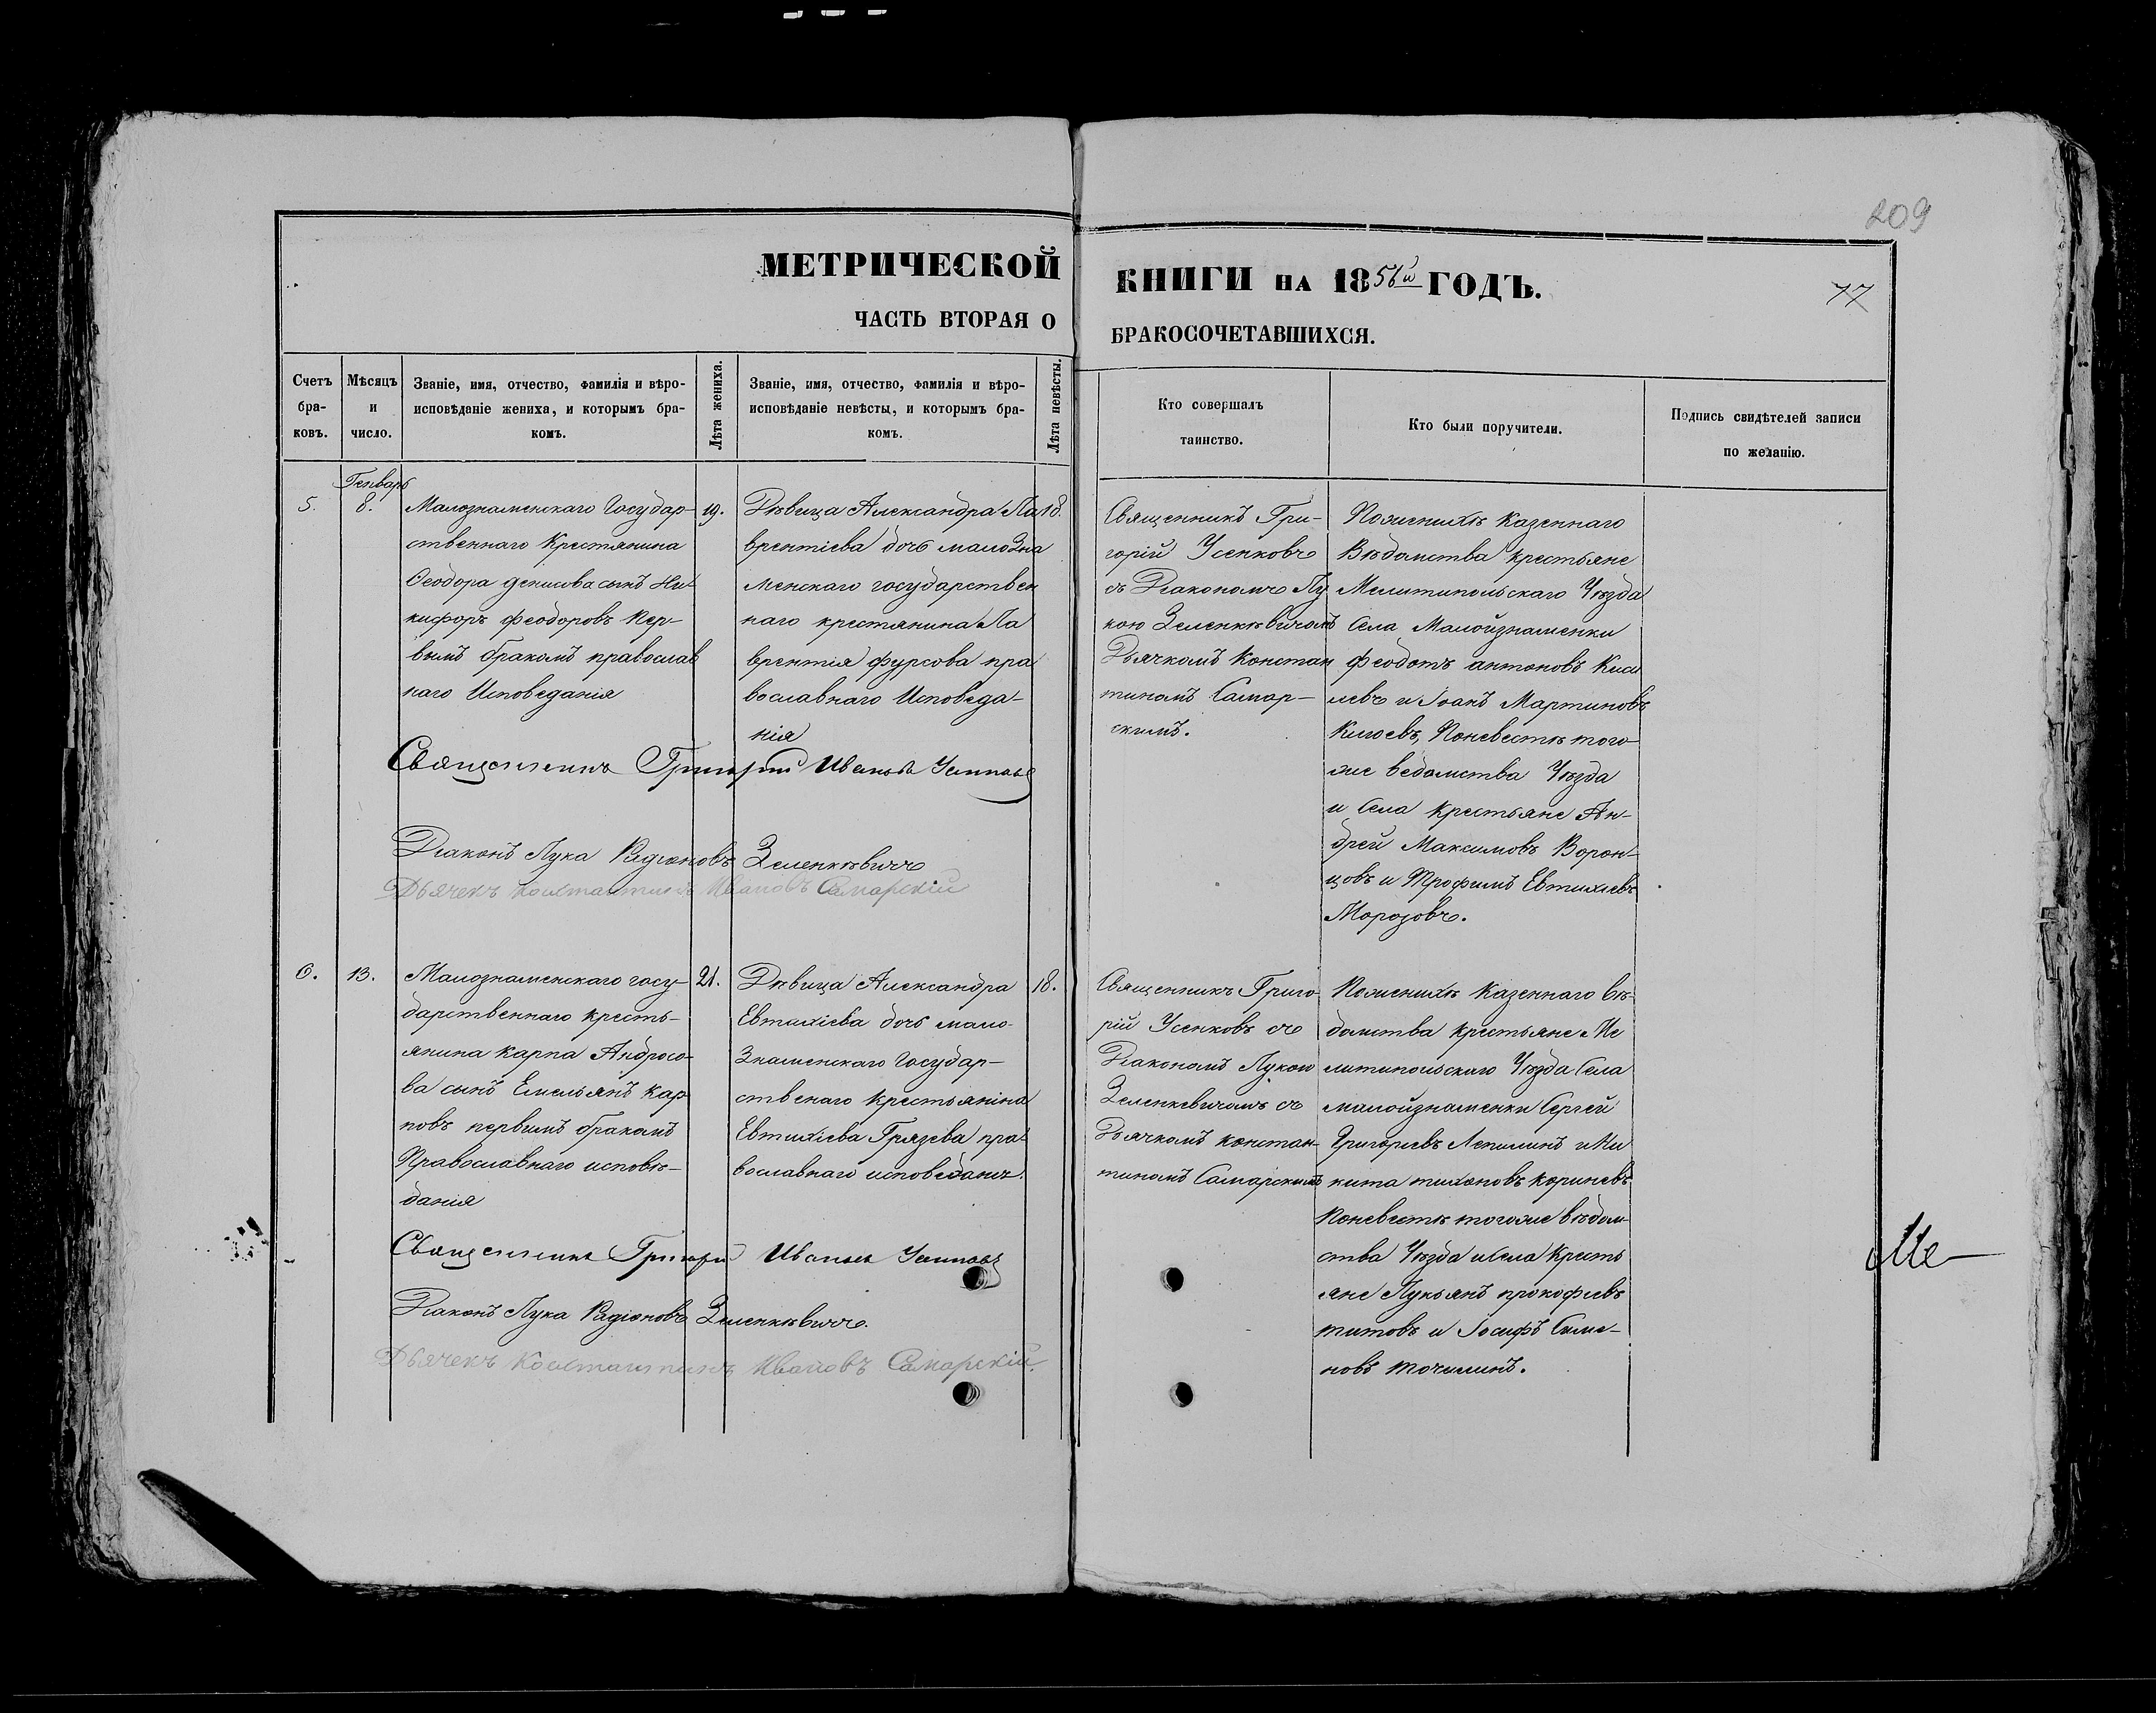 209
МЕТРИЧЕСКОЙ КНИГИ НА 1856й ГОДЪ.
77
ЧАСТЬ ВТОРАЯ О БРАКОСОЧЕТАВШИХСЯ.
Счетъ бра-ковъ.
Мѣсяцъ и число.
Званіе, имя, отчество, фамилія и вѣро-
исповѣданіе жениха, и которымъ бра-
комъ.
Лѣта жениха.
Званіе, имя, отчество, фамилія и вѣро-
исповѣданіе невѣсты, и которымъ бра-
комъ.
Лѣта невѣсты.
Кто совершалъ
таинство.
Кто были поручители.
Подпись свидѣтелей записи
по желанію.
5.
Генварь
8.
Малознаменскаго Государ-
ственнаго Крестянина
Феодора денисова сынъ Ни-
кифоръ феодоровъ Пер-
вымъ бракомъ православ
наго Исповеданія
19.
Дѣвица Александра Ла
врентіева дочь малоЗна
менскаго государствен
наго крестянина Ла
врентія фурсова пра
вославнаго Исповеда-
нія
18.
Священникъ Гри-
горій Усенковъ
съ Діакономъ Лу
кою Зеленкѣвичомъ
Дьячкомъ Констан
тиномъ Самар-
скимъ.
Поженихѣ Казеннаго
Вѣдомства крестьяне
Мелитипольскаго Уѣзда
Села Малойзнаменки
феодотъ антоновъ Кисе
левъ и Іоанъ Мартиновъ
Поневестѣ того
же ведомства Уѣзда
и Села крестьяне Ан-
дрей Максимовъ Ворон-
цовъ и Трофимъ Евтихіевъ
Морозовъ.
Священникъ Григорій Ивановъ Усенковъ
Діаконъ Лука Радіоновъ Зеленкѣвичъ
Дьячекъ Константинъ Ивановъ Самарскій
6.
13.
Малознаменскаго госу-
дарственнаго кресть-
янина карпа Андросо-
ва сынъ Емельянъ кар
повъ первымъ бракомъ
Православнаго исповѣ-
данія
21.
Дѣвица Александра
Евтихіева дочь мало-
Знаменскаго Государ-
ственаго Крестьяніна
Евтихіева Грязева пра
вославнаго исповеданія.
18.
Священникъ Григо
рій Усенковъ съ
Діакономъ Лукою
Зеленкевичомъ съ
Дьячкомъ констан-
тиномъ Самарскимъ
Поженихѣ Казеннаго вѣ-
домства крестьяне Ме
литипольскаго Уѣзда Села
малойзнаменки Сергей
Григоріевъ Лепилинъ и Ни
кита тихоновъ кориневъ
Поневестѣ тогоже вѣдом-
ства Уѣзда и Села Кресть
яне Лукьянъ прокофиевъ
титовъ и Іосифъ Симе-
новъ точилинъ.
Священникъ Григорій Ивановъ Усенковъ
Діаконъ Лука Радіоновъ Зеленкѣвичъ.
Дьячекъ Константинъ Ивановъ Самарскій.
Ме